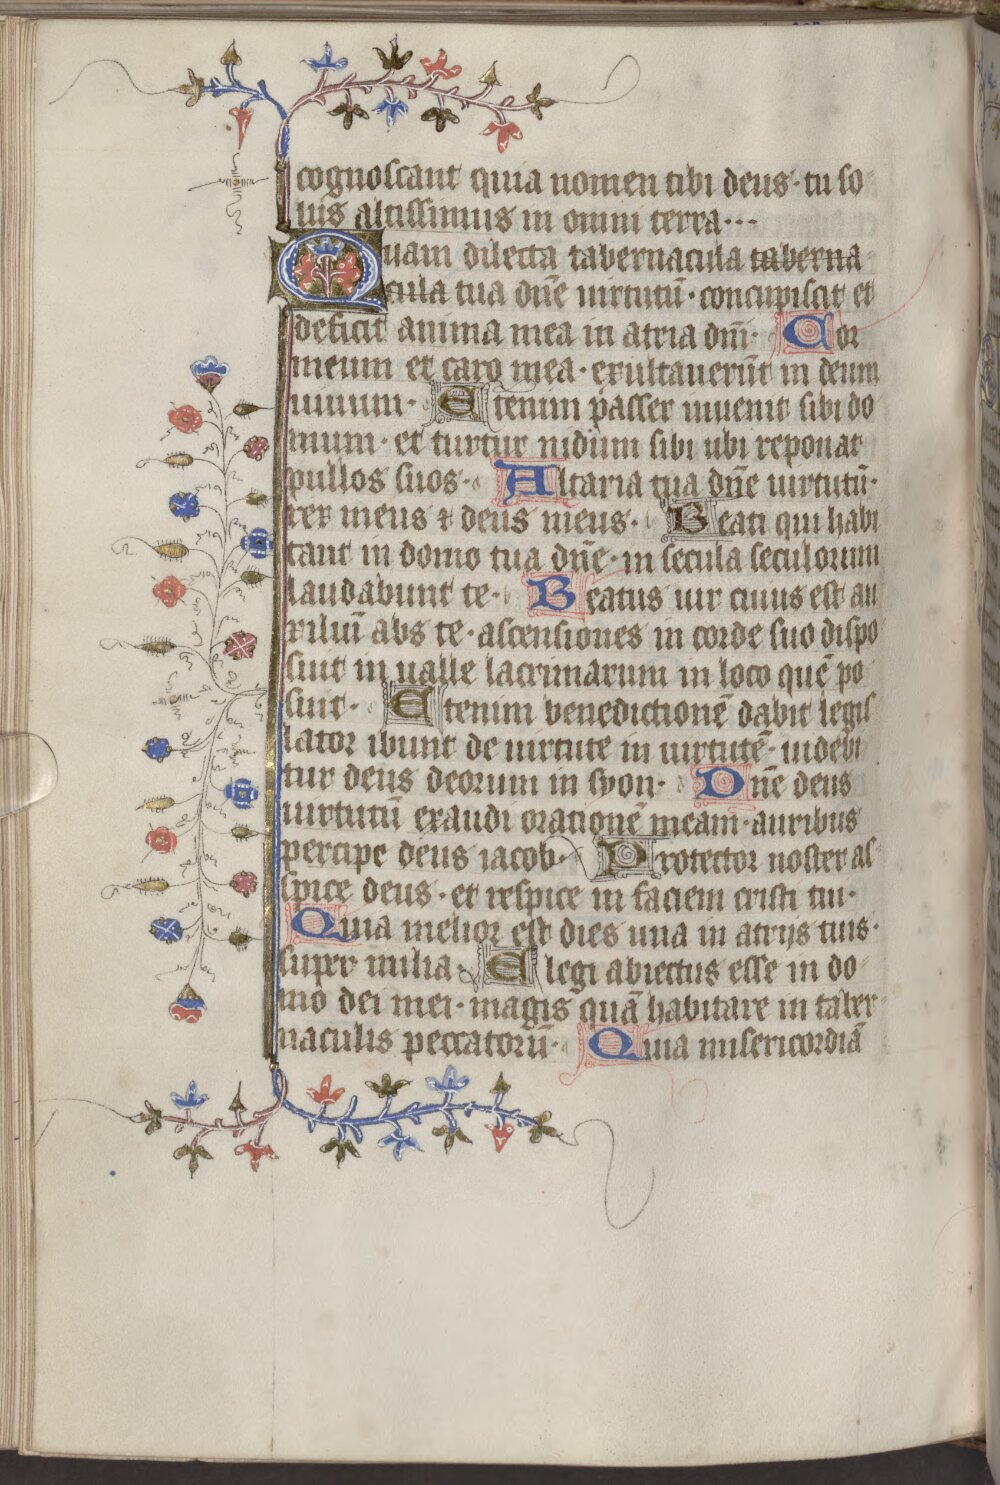 cognoscant quia nomen tibi deus · tu so
lus altissimus in omni terra ···
Quam dilecta tabernacula taberna
cula tua dn̄e uirtutū · concupiscit et
deficit anima mea in atria dn̄i · Cor
meum et caro mea · exultauerūt in deum
uiuum · Etenim passer inuenit sibi do
mum · et turtur nidum sibi ubi reponat
pullos suos · Altaria tua dn̄e uirtutū ·
rex meus ⁊ deus meus · Beati qui habi
tant in domo tua dn̄e · in secula seculorum
laudabunt te · Beatus uir cuius est au
xiliū abs te · ascensiones in corde suo dispo
suit in ualle lacrimarum in loco quē po
suit · Etenim benedictionē dabit legis
lator ibunt de uirtute in uirtutē · uidebi
tur deus deorum in syon · Dn̄e deus
uirtutū exaudi orationē meam · auribus
percipe deus iacob · Protector noster as
spice deus · et respice in faciem cristi tui ·
Quia melior est dies una in atrijs tuis ·
super milia · Elegi abiectus esse in do
mo dei mei · magis quā habitare in taber
naculis peccatorū · Quia misericordiā